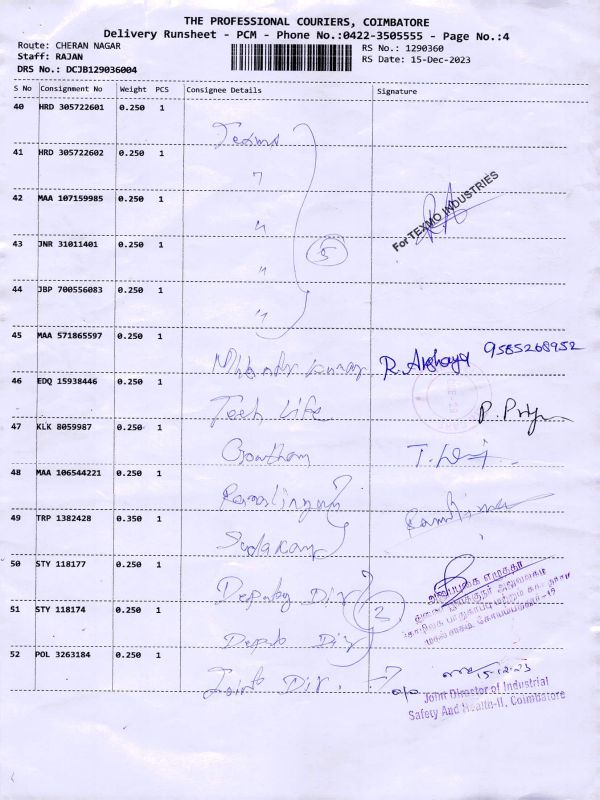 THE PROFESSIONAL COURIERS, COIMBATORE
Delivery Runsheet - PCM - Phone No.:0422-3505555 - Page No.:4
Route: CHERAN NAGAR RS No.: 1290360
Staff: RAJAN RS Date: 15-Dec-2023
DRS No.: DCJB129036004
S No Consignment No Weight PCS Consignee Details Signature
40 HRD 305722601 0.250 1
Texmo
41 HRD 305722602 0.250 1
"
42 MAA 107159985 0.250 1
For TEXMO INDUSTRIES
"
43 JNR 31011401 0.250 1
5
"
44 JBP 700556083 0.250 1
"
45 MAA 571865597 0.250 1
R. Akshaya 9585268952
46 EDQ 15938446 0.250 1
Tech Life P. Priya
47 KLK 8059987 0.250 1
Gowtham
48 MAA 106544221 0.250 1
Ramalingam
49 TRP 1382428 0.350 1
Sudakar
50 STY 118177 0.250 1
Deputy Dir
2
51 STY 118174 0.250 1
Deput Dir
52 POL 3263184 0.250 1
15-12-23
Joint Dir.
Joint Director of Industrial
Safety And Health-II, Coimbatore